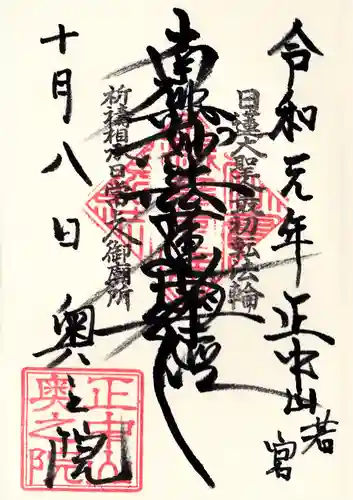 令和元年 正中山 若宮
日蓮大聖最初転法輪
南無妙法蓮華経
祈祷相承日常上人御廟所
十月八日 奥之院
正中山
奥之院